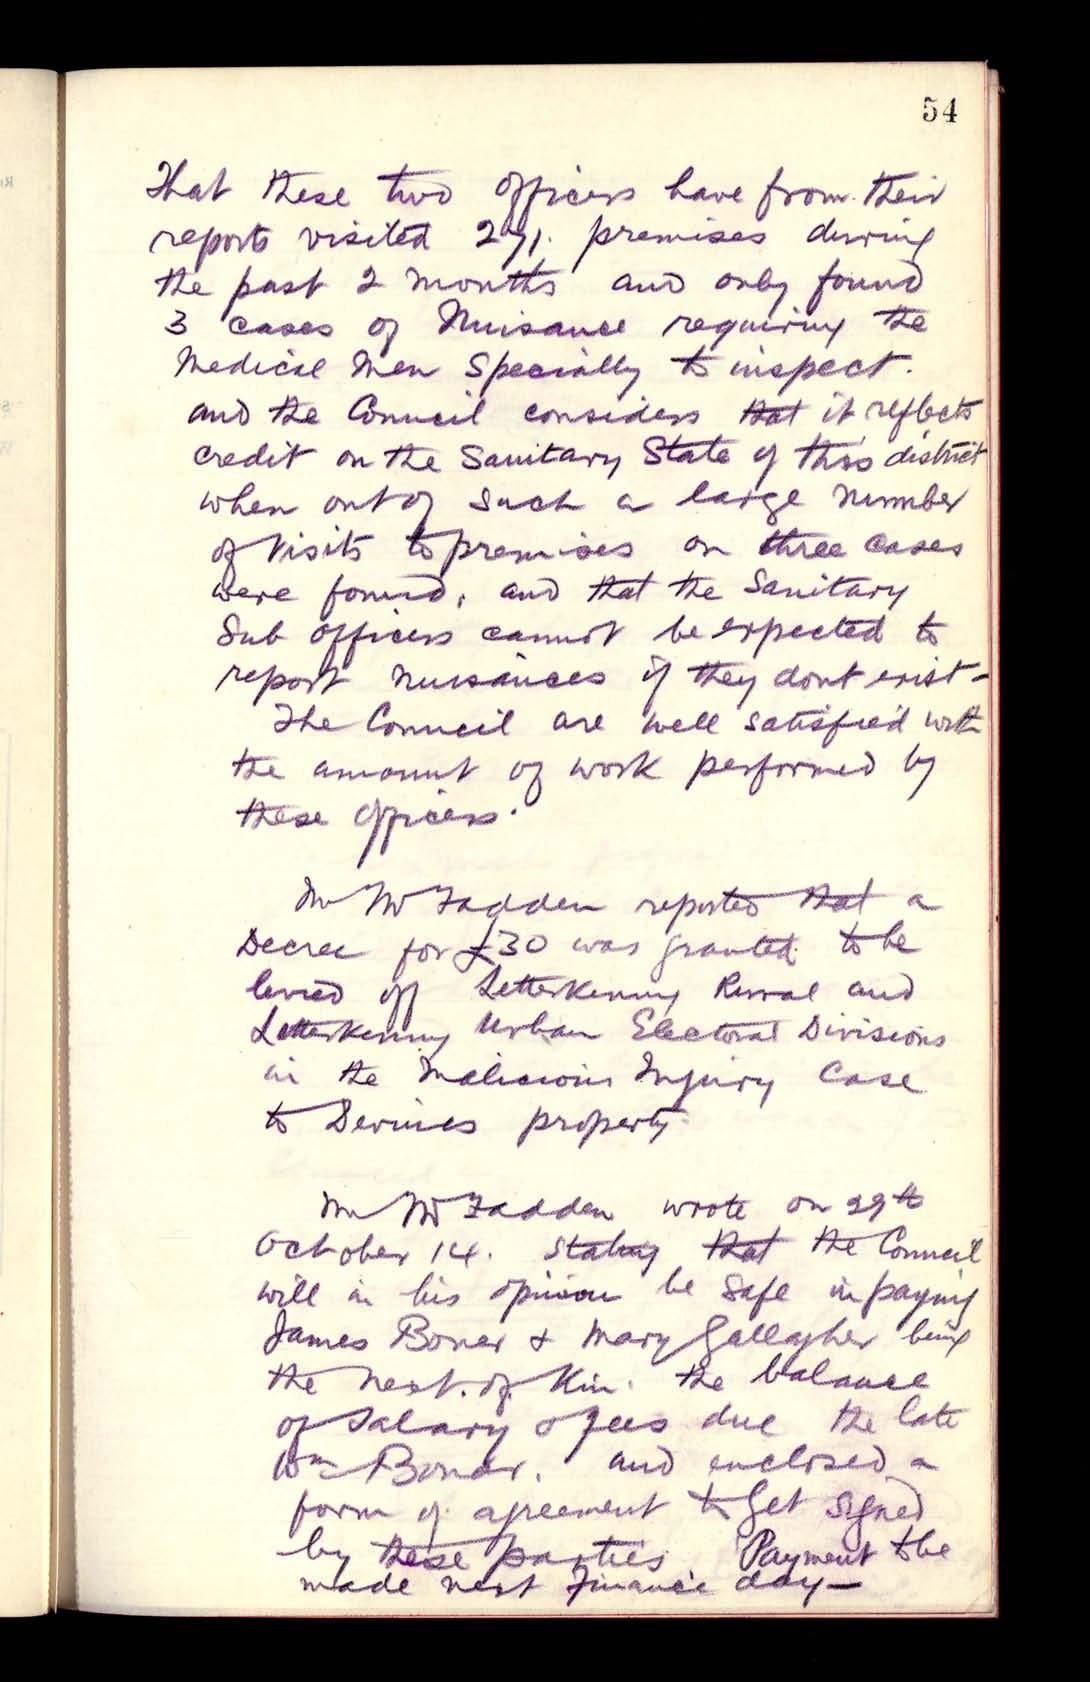 54
That these two officers have from their
reports visited 271. premises during
the past 2 months and only found
3 cases of Nuisance requiring the
Medical Men Specially to inspect.
and the Council considers that it reflects
credit on the Sanitary State of this district
when out of such a large number
of Visits to premises on three cases
were found, and that the Sanitary
Sub officers cannot be expected to
report nuisances if they dont exist -
The Council are well satisfied with
the amount of work performed by
these officers.
Mr McFadden reported that a
Decree for £30 was granted to be
levied off Letterkenny Rural and
Letterkenny Urban Electoral Divisions
in the Malicious Injury Case
to Devines property.
Mr McFadden wrote on 29th
October 14. stating that the Council
will in his opinion be safe in paying
James Boner & Mary Gallagher being
the next. of. Kin. the balance
of Salary & fees due the late
Wm Boner. and enclosed a
form of agreement to get signed
by these parties Payment to be
made next Finance day -